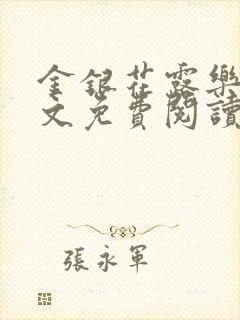 金銀花露樂
文免費閱讀
張永軍